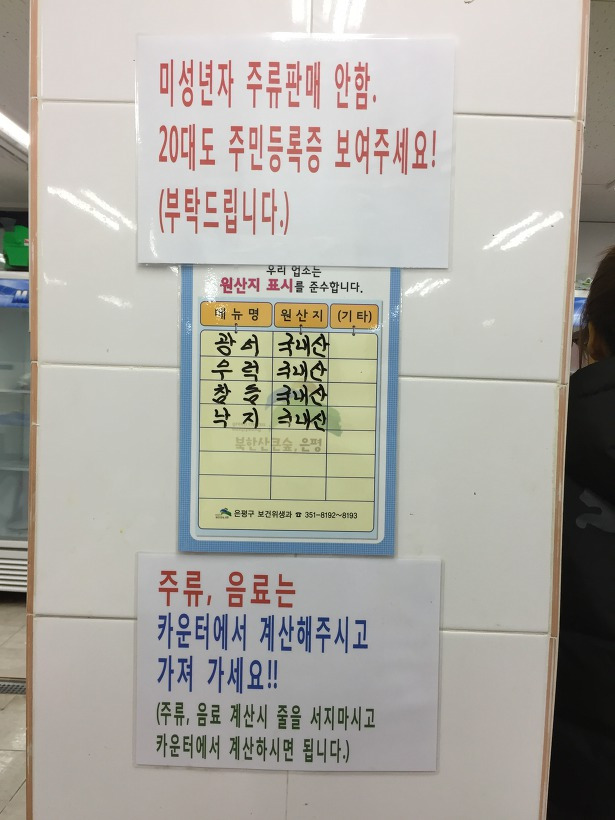 미성년자 주류판매 안함.
20대도 주민등록증 보여주세요!
(부탁드립니다.)
우리 업소는
원산지 표시를 준수합니다.
메뉴명 원산지 (기타)
광어 국내산
우럭 국내산
참돔 국내산
낙지 국내산
북한산큰숲, 은평
은평구 보건위생과 ☎ 351-8192~8193
주류, 음료는
카운터에서 계산해주시고
가져 가세요!!
(주류, 음료 계산시 줄을 서지마시고
카운터에서 계산하시면 됩니다.)